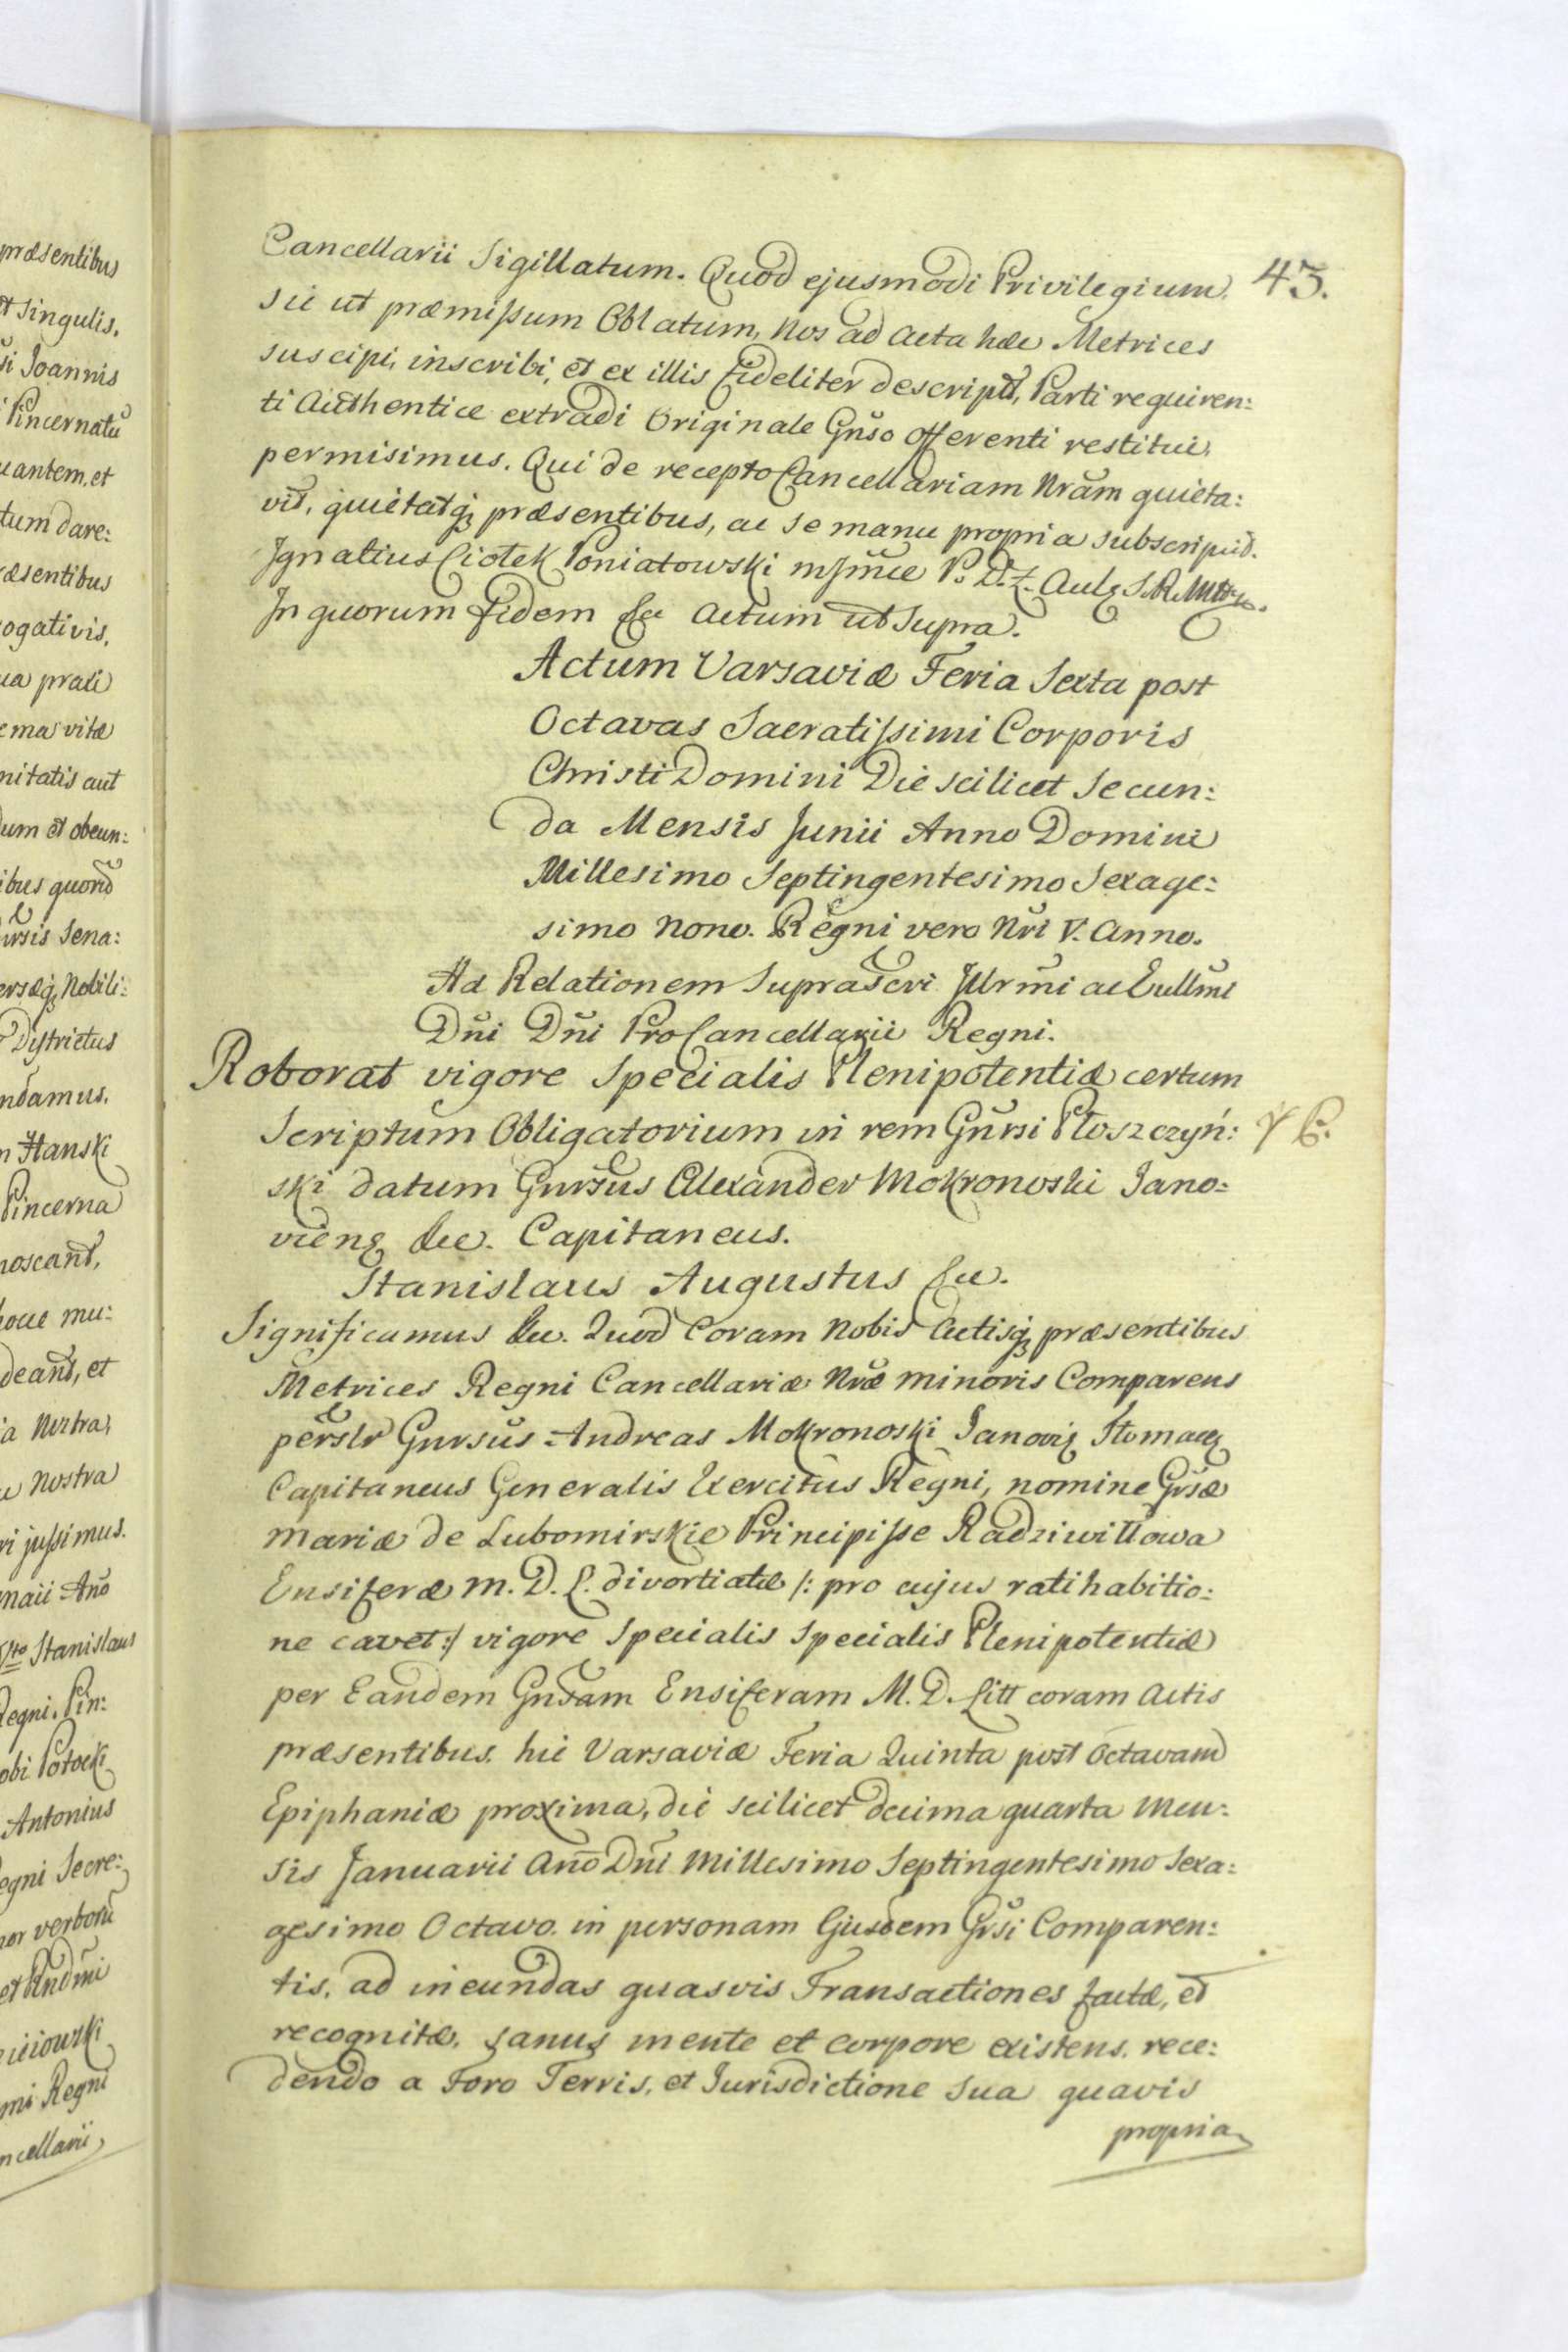 præsentibus
et Singulis.
si Joannis
Pincernatū
uantem, et
tum dare:
ræsentibus
rogativis,
ua prati
ema vitæ
nitatis aut
dum et obeun:
ibus quorū
ursis Sena:
ersæq, Nobili:
Districtus
ndamus.
n Hanski
Pincerna
noscant,
loue mu:
deant, et
ia Nostra,
e nostra
ri jussimus.
maii Año
Stanislaus
Regni. Pin:
obi Potocki
Antonius
Regni Secre:
nor verborū
et Rndmi
iciowski
mi Regni
ncellarii,
43.
Cancellarii Sigillatum. Quod ejusmodi Privilegium,
sic ut præmissum Oblatum, Nos ad Acta hæc Metrices
suscipi, inscribi, et ex illis fideliter descriptū, Parti requiren:
ti Authentice extradi Originale Gnso Offerenti restitui,
permisimus. Qui de recepto Cancellariam Nram quieta:
vit, quietatq præsentibus, ac se manu propria subscripsit.
Ignatius Ciołek Poniatowski mjmce P. D. Z. Aulę S. R. Mttis.
In quorum fidem &c Actum ut Supra.
Actum Varsaviæ Feria Sexta post
Octavas Sacratissimi Corporis
Christi Domini Die scilicet Secun:
da Mensis Junii Anno Domini
Millesimo Septingentesimo Sexage:
simo nono. Regni vero Nri V. Anno.
Ad Relationem Suprascri Illrmi ac Excllmi
Dni Dni ProCancellarii Regni.
Roborat vigore Specialis Plenipotentiæ certum
Scriptum Obligatorium in rem Gnrsi Płoszczyń:
ski datum Gnrsus Alexander Mokronoski Jano:
vienę &c. Capitaneus.
Stanislaus Augustus &c.
Significamus &c. Quod Coram Nobis Actisq præsentibus
Metrices Regni Cancellariæ Nræ minoris Comparens
perslr Gnrsus Andreas Mokronoski Janovię Tłomacę
Capitaneus Generalis Exercitus Regni, nomine Grsæ
Mariæ de Lubomirskie Principisse Radziwiłłowa
Ensiferæ M. D. L. divortiatæ /: pro cujus ratihabitio:
ne cavet :/ vigore Specialis Specialis Plenipotentiæ
per Eandem Gnsam Ensiferam M. D. Litt coram Actis
præsentibus. hic Varsaviæ Feria Quinta post Octavam
Epiphaniæ proxima, die scilicet decima quarta Men:
sis Januarii Año Dni Millesimo Septingentesimo Sexa:
gesimo Octavo. in personam Ejusdem Grsi Comparen:
tis, ad ineundas quasvis Transactiones factæ, et
recognitæ. Sanus mente et corpore existens. rece:
dendo a Foro Terris, et Jurisdictione Sua quavis
propria